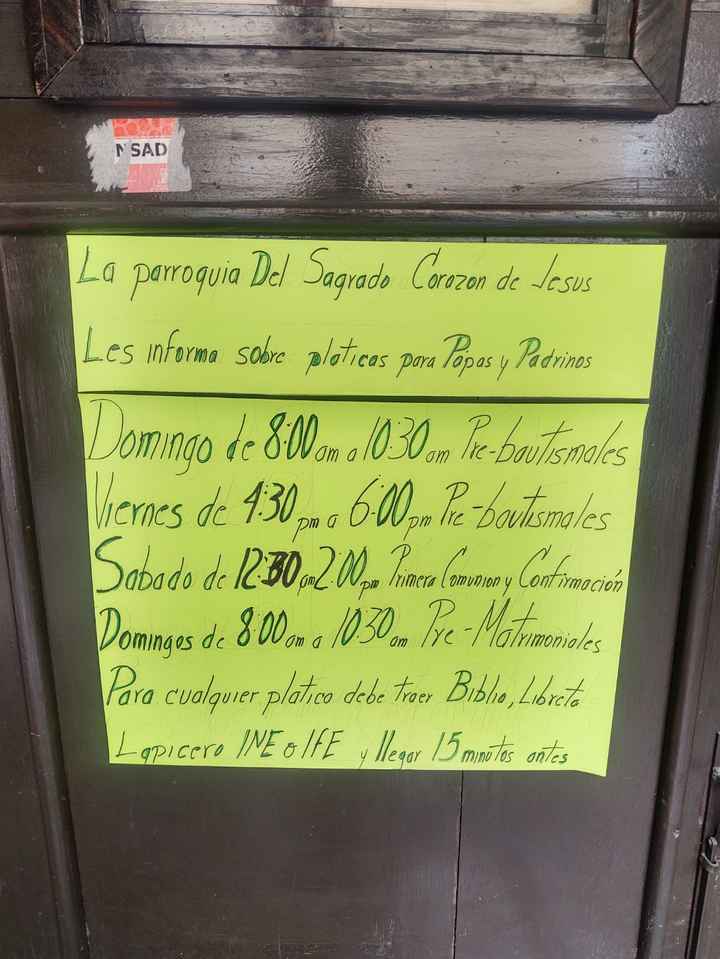 NSAD
La parroquia Del Sagrado Corazon de Jesus
Les informa sobre platicas para Papas y Padrinos
Domingo de 8:00 am a 10:30 am Pre-bautismales
Viernes de 4:30 pm a 6:00 pm Pre-bautismales
Sabado de 12:30 pm 2:00 pm Primera Comunion y Confirmación
Domingos de 8:00 am a 10:30 am Pre-Matrimoniales
Para cualquier platica debe traer Biblia, Libreta
Lapicero INE o IFE y llegar 15 minutos antes